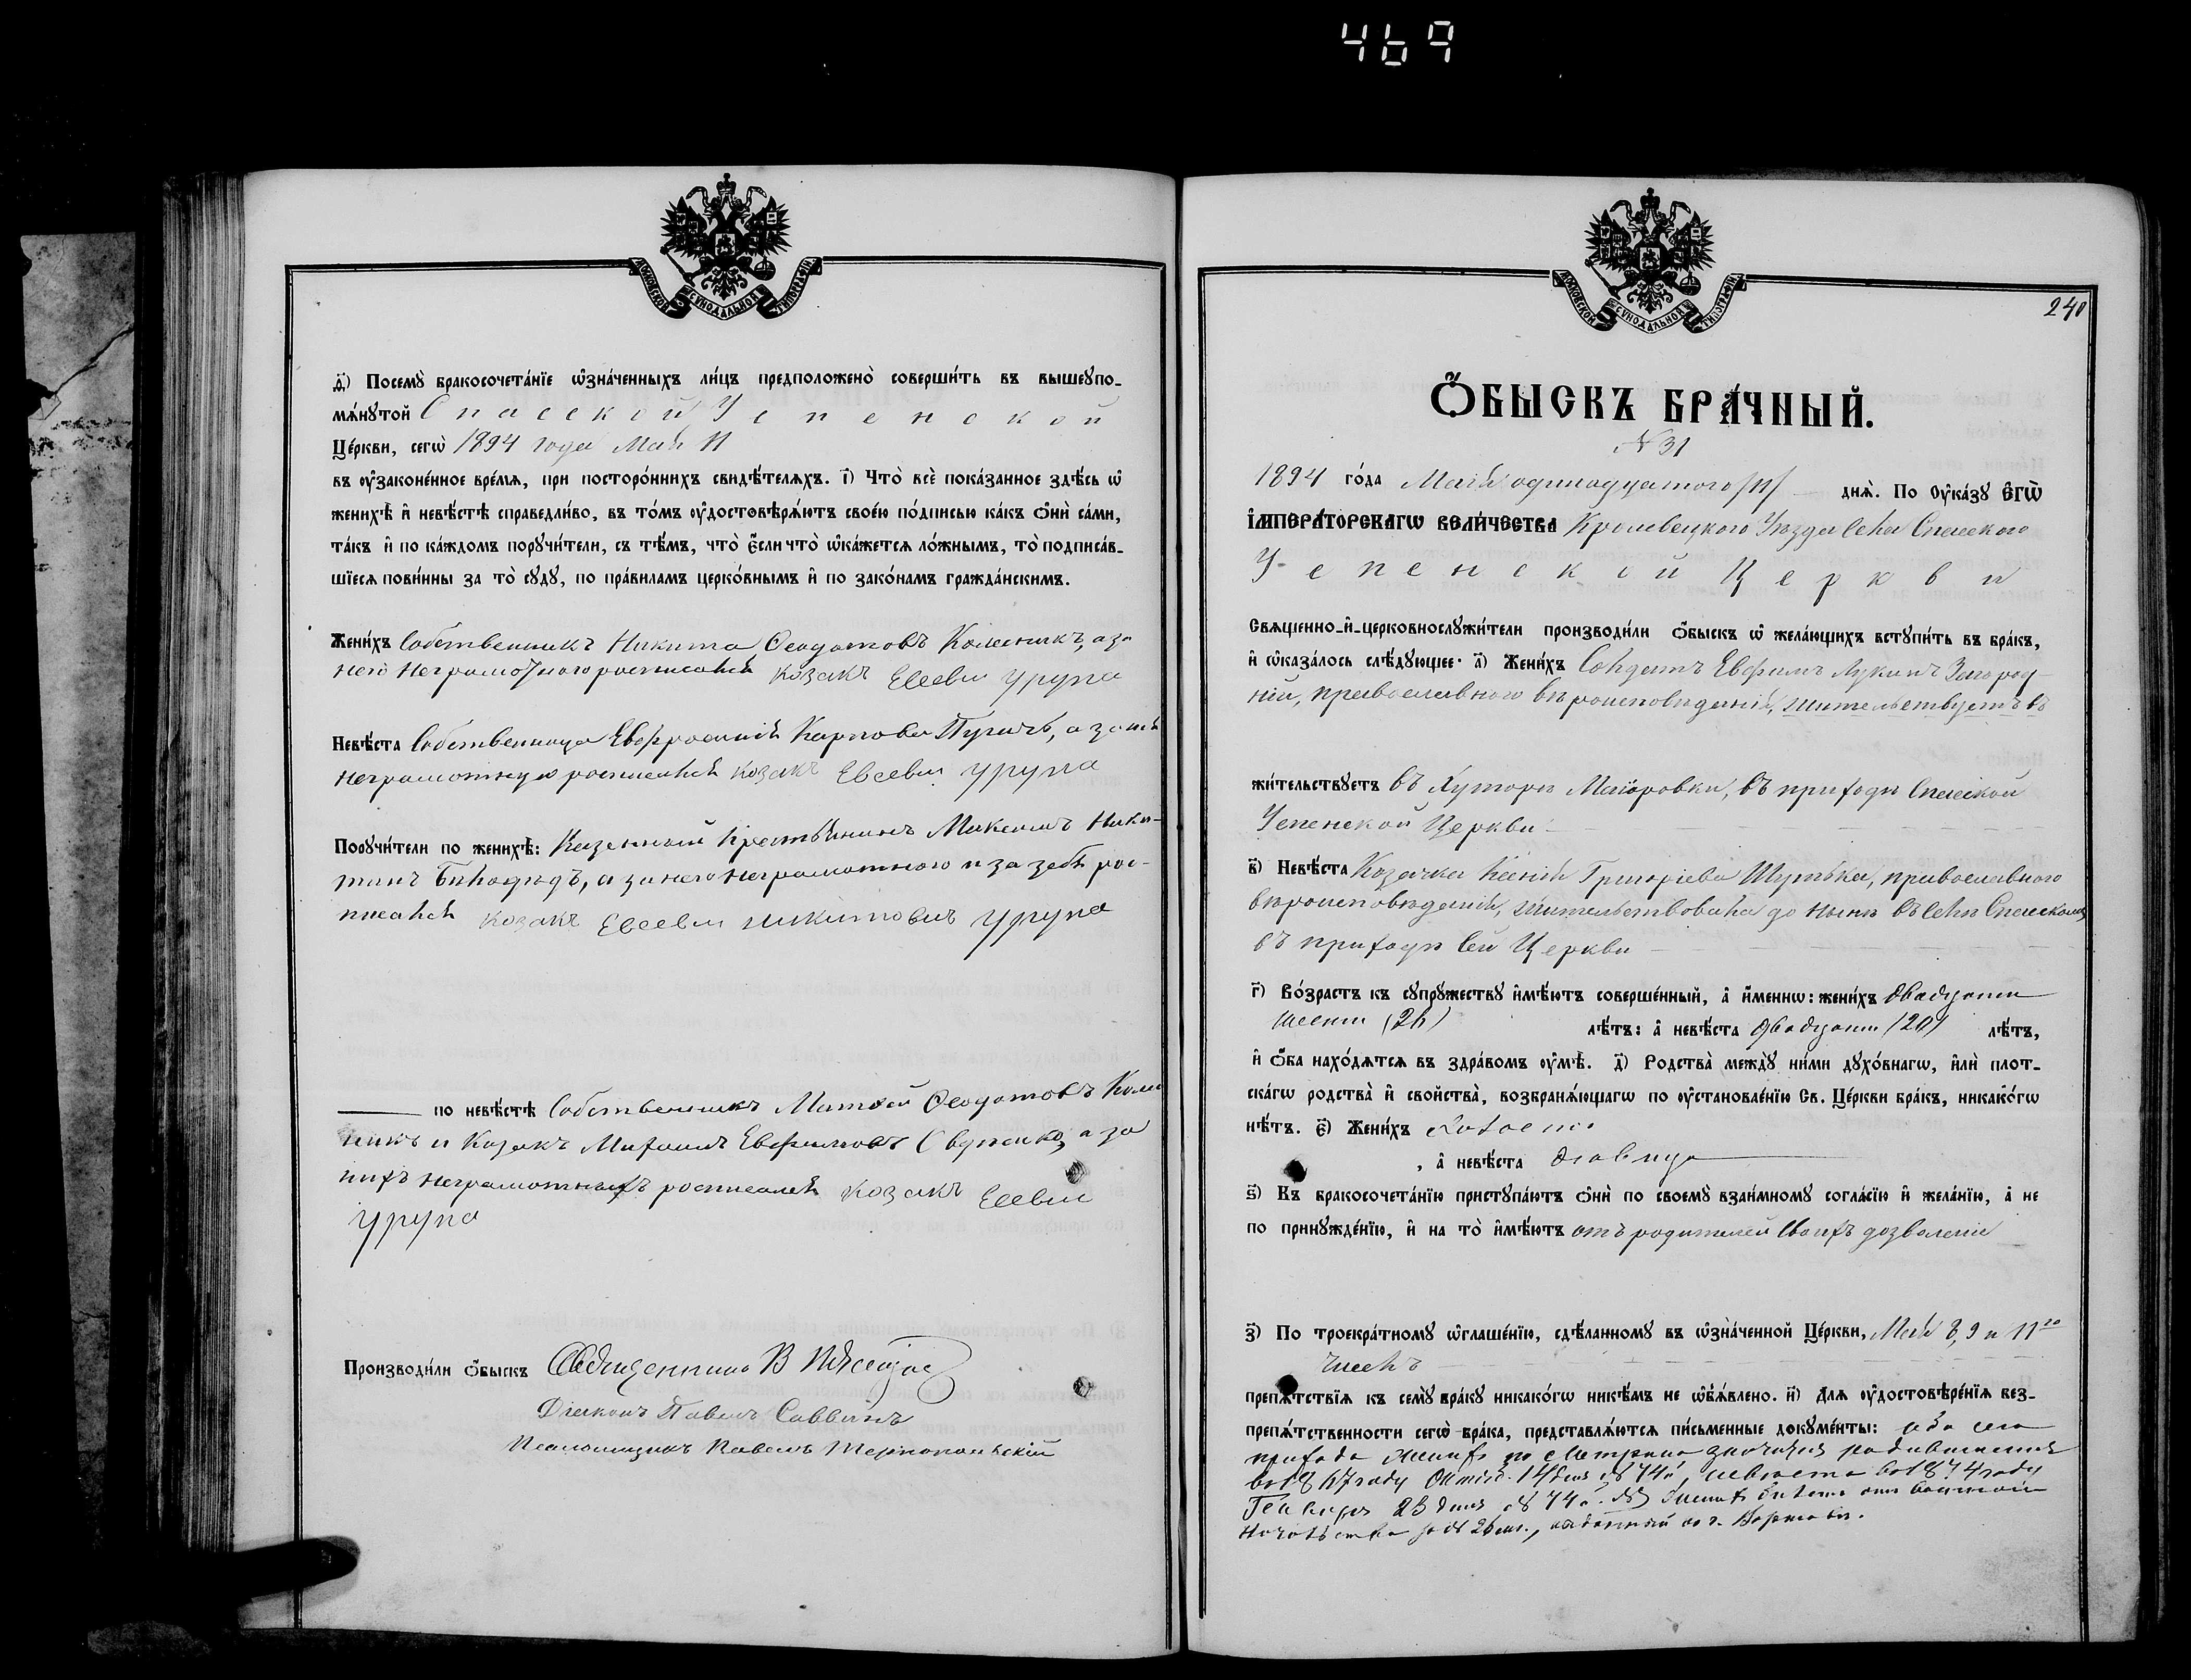 469
МОСКОВСКОЙ СѴНОДАЛЬНОЙ ТИПОГРАФІИ
д҃і) Посемꙋ̀ бракосочета́нїе ѡ҆зна́ченныхъ ли́цъ предположено̀ соверши́ть въ вышеꙋпо-
мѧ́нꙋтой Спасской Успенской
Це́ркви, сегѡ̀ 1894 года Мая 11
въ ᲂу҆законе́нное вре́мѧ, при посторо́ннихъ свидѣ́телѧхъ. і҃) Что̀ всѐ пока́занное здѣ́сь ѡ҆
женихѣ̀ и҆ невѣ́стѣ справедли́во, въ то́мъ ᲂу҆достовѣрѧ́ютъ свое́ю по́дписью ка́къ ѻ҆нѝ са́ми,
та́къ и҆ по ка́ждомъ порꙋчи́тели, съ тѣ́мъ, что̀ є҆́сли что̀ ѡ҆ка́жетсѧ ло́жнымъ, то̀ подписа́в-
шїесѧ пови́нны за то̀ сꙋдꙋ̀, по пра́виламъ церко́внымъ и҆ по зако́намъ гражда́нскимъ.
Жени́хъ Собственникъ Никита Ѳеодотовъ Колесникъ, а за
него неграмотного росписался козакъ Евсевiй Урупа
Невѣ́ста Собственница Евфросинія Карпова Пугачъ, а за нея
неграмотную росписался козакъ Евсевiй Урупа
Порꙋчи́тели по женихѣ̀: Казенный крестьянинъ Максимъ Ники-
тинъ Бѣлодѣдъ, а за него неграмотного и за себя рос-
писался козакъ Евсевiй Никитовичъ Урупа
по невѣ́стѣ Собственникъ Матвей Ѳеодотовъ Колес
никъ и Козакъ Михаилъ Евфимовъ а за
нихъ неграмотныхъ росписался козакъ Евсевiй
Урупа
Производи́ли ѻ҆́быскъ Священникъ В
Діаконъ Павелъ Саввинъ
Псаломщикъ Павелъ Тернопольскій
МОСКОВСКОЙ СѴНОДАЛЬНОЙ ТИПОГРАФІИ
240
Ѻ҆́БЫСКЪ БРА́ЧНЫЙ.
№ 31
1894 го́да Мая одинадцатого /11/ днѧ̀. По ᲂу҆ка́зꙋ Є҆ГѠ̀
І҆МПЕРА́ТОРСКАГѠ ВЕЛИ́ЧЕСТВА Кролевецкого Уѣзда Села Спасского
Успенской Церкви
Свѧще́нно-и҆-церковнослꙋжи́тели производи́ли ѻ҆́быскъ ѡ҆ жела́ющихъ встꙋпи́ть въ бра́къ,
и҆ ѡ҆каза́лось слѣ́дꙋющее: а҃) Жени́хъ Солдатъ Евфимъ Лукинъ Загород-
ній, православного вѣроисповѣданія, жительствуетъ въ
жи́тельствꙋетъ въ Хуторѣ Маіоровки, въ приходѣ Спасской
Успенской Церкви
в҃) Невѣ́ста Козачка Ксенія Григоріева Шутька, православного
вѣроисповѣданія, жительствовала до нынѣ въ селѣ Спасскомъ
въ приходѣ Сей Церкви
г҃) Во́зрастъ къ сꙋпрꙋ́жествꙋ и҆мѣ́ютъ соверше́нный, а҆ и҆́меннѡ: жени́хъ двадцати
шести (26) лѣ́тъ: а҆ невѣ́ста двадцати (20) лѣ́тъ,
и҆ ѻ҆́ба нахо́дѧтсѧ въ здра́вомъ ᲂу҆мѣ̀. д҃) Родства̀ междꙋ̀ ни́ми дꙋхо́внагѡ, и҆лѝ плот-
ска́гѡ родства̀ и҆ свойства̀, возбранѧ́ющагѡ по ᲂу҆становле́нїю Св. Це́ркви бра́къ, никако́гѡ
нѣ́тъ. є҃) Жени́хъ холостъ
, а҆ невѣ́ста дѣвица
ѕ҃) Къ бракосочета́нїю пристꙋпа́ютъ ѻ҆нѝ по своемꙋ̀ взаи́мномꙋ согла́сїю и҆ жела́нїю, а҆ не
по принꙋжде́нїю, и҆ на то̀ и҆мѣ́ютъ отъ родителей своихъ дозволеніе
з҃) По троекра́тномꙋ ѡ҆глаше́нїю, сдѣ́ланномꙋ въ ѡ҆зна́ченной Це́ркви, Мая 8, 9 и 11го
числъ
препѧ́тствїѧ къ семꙋ̀ бра́кꙋ никако́гѡ никѣ́мъ не ѡ҆б̾ѧ́влено. и҃) Длѧ ᲂу҆достовѣре́нїѧ без-
препѧ́тственности сегѡ̀ бра́ка, представлѧ́ютсѧ пи́сьменные докꙋме́нты: оба сего
прихода женихъ по метрикѣ значится родившимся
1867 году Октяб. 14 дня № 74й, невѣста въ 1874 году
Генваря 23 дня
Начальства